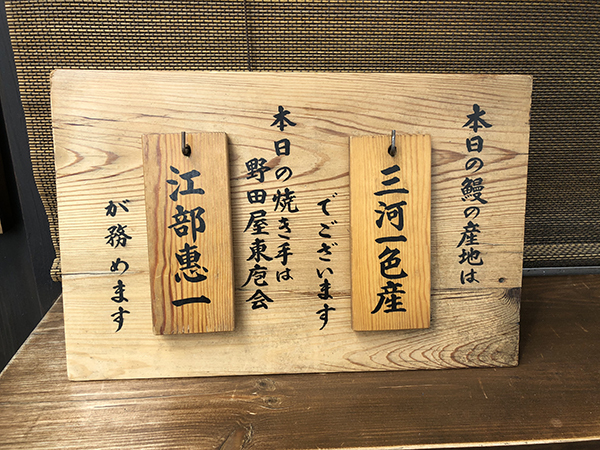 本日の鰻の産地は
三河一色産
でございます
本日の焼き手は
野田屋東庖会
江部惠一
が務めます